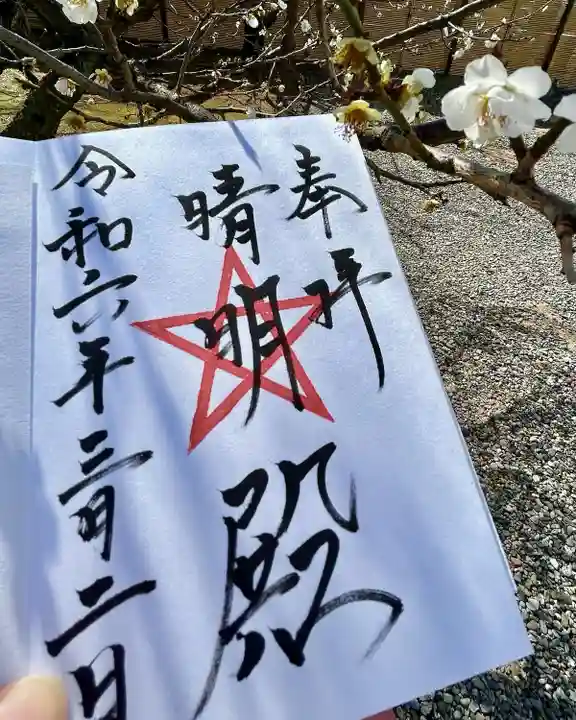 奉拝
晴明殿
令和六年三月二日